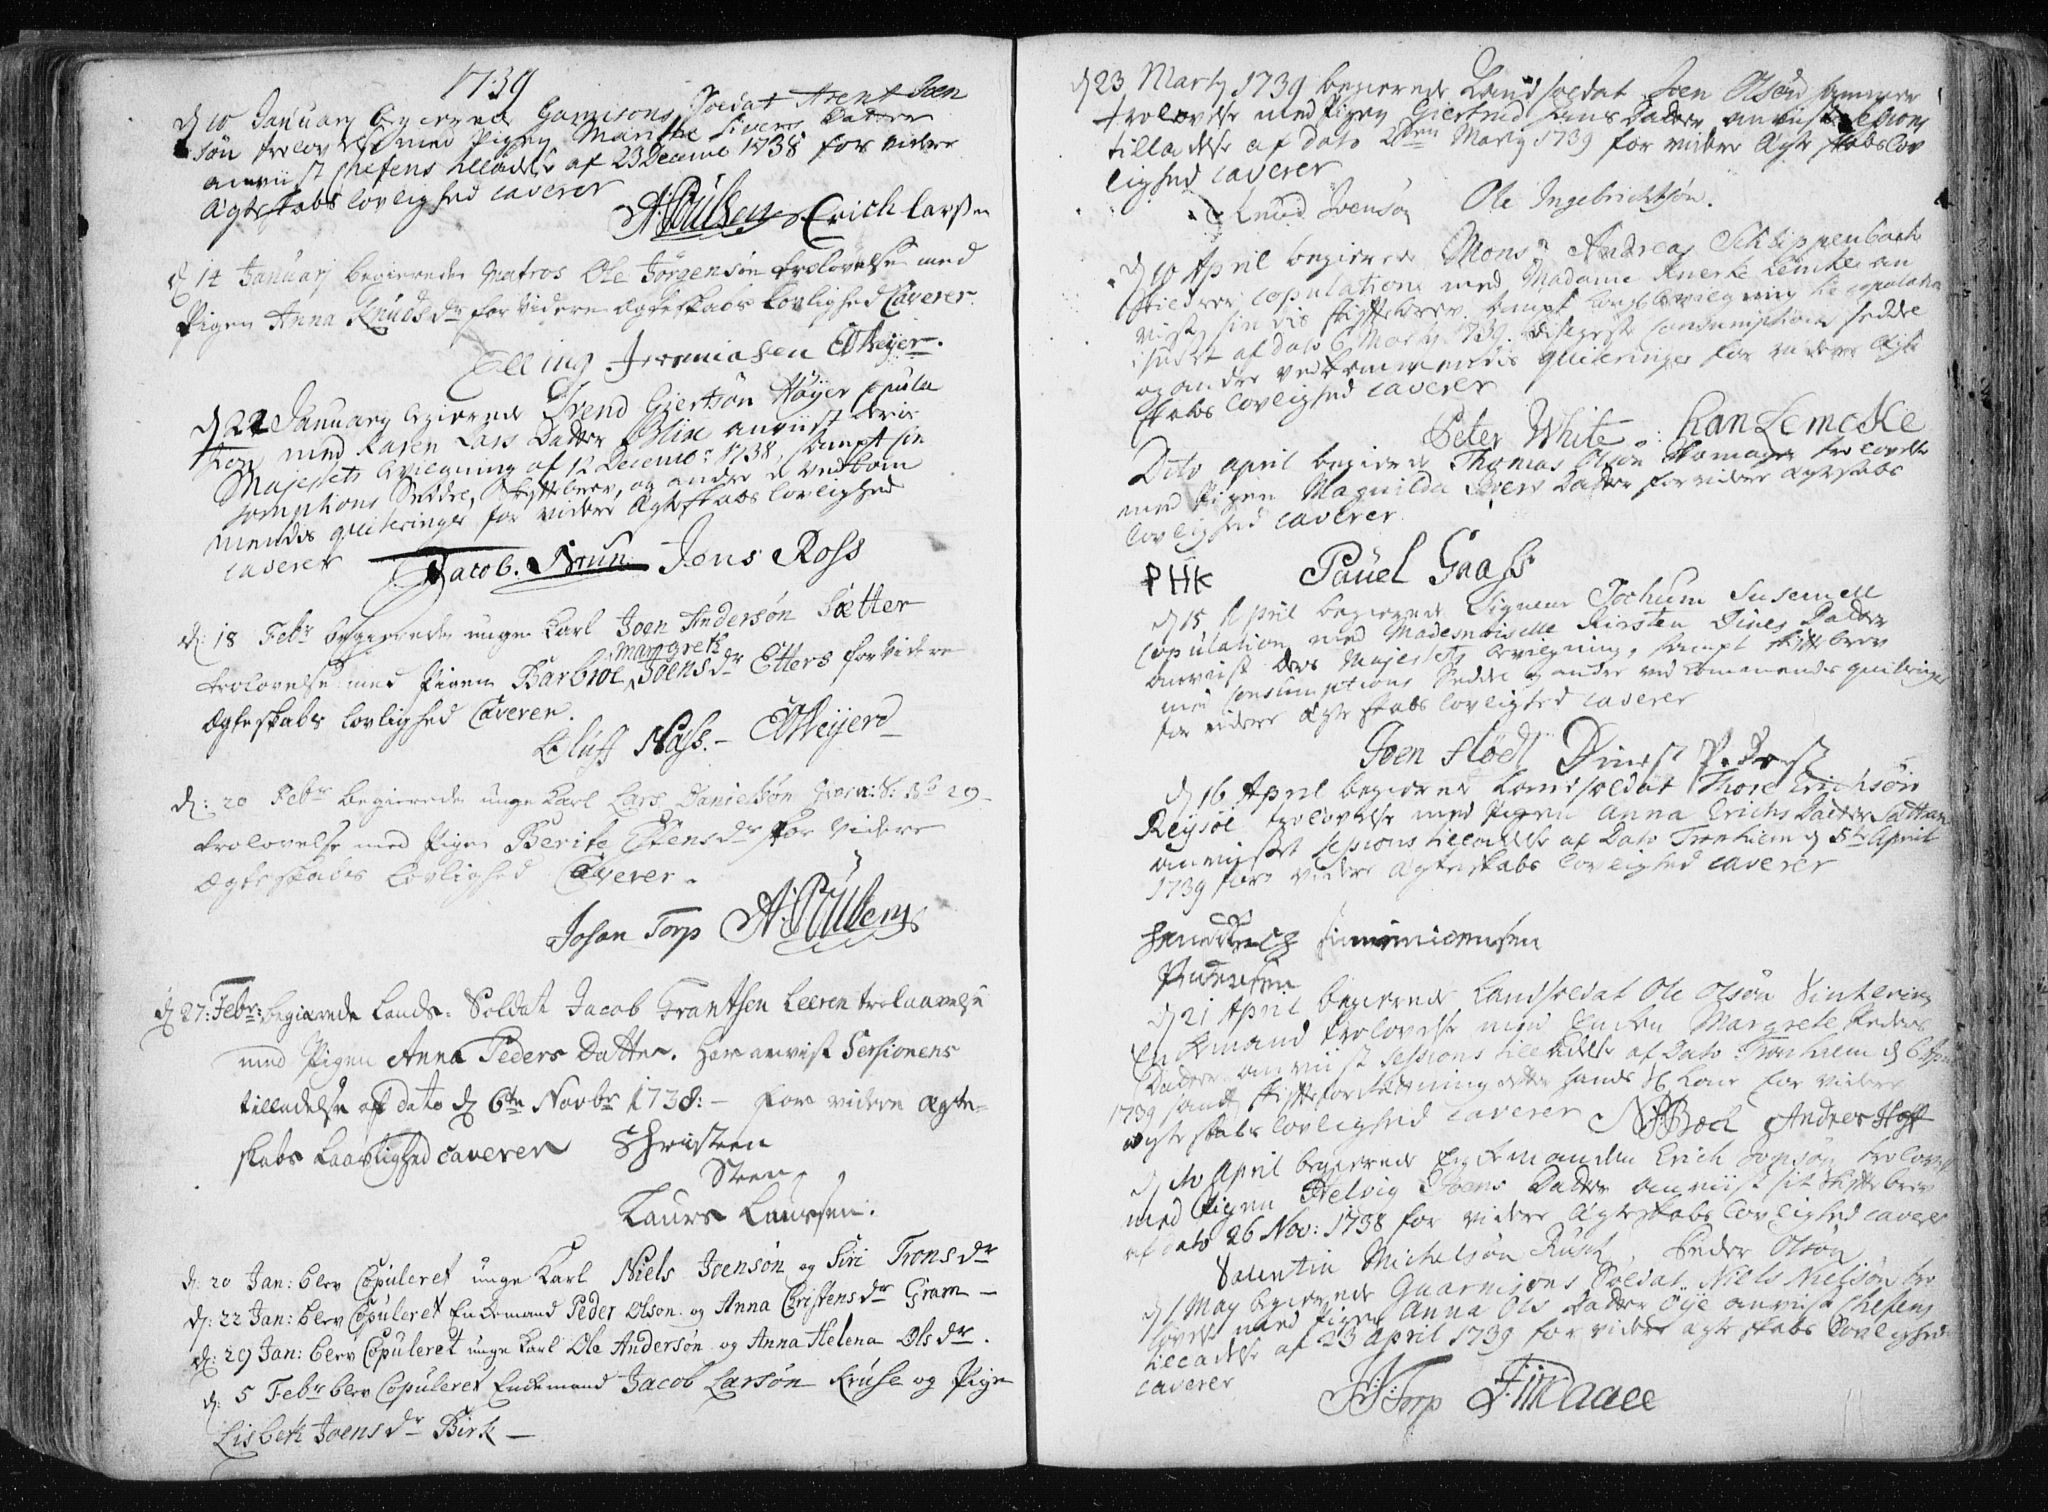 1739
d 10 January begierede Garnisons Soldat Arent Joen
søn trolovelse med Pigen Maritha Sivers Datter
anviist chefens tilladelse af 23 Decemb 1738 for videre
Ægteskabs lovlighed caverer
A Poulsen Erich larßen
d 14 January begierede Matros Ole Jörgensön trolovelse med
Pigen Anna Knuds dr for videre ægteskabs Lovlighed Caverer.
Elling Jeremiasen Meyer.
d 22 January begierede Svend Giertsön Höyer copula
tion med Karen Lars Datter Blix anviist deris
Majestets bevilgning af 12 Decembr: 1738, sampt con
somptions Seddel, Skifftebrev, og andre vedkom
mendes qviteringer for videre Ægteskabs lovlighed
caverer Jacob. Brun Jens Ross
d: 18 Febr begierede unge Karl Joen Andersön Sætter
Margreth
trolovelse med Pigen Barbroe Joens dr Etters for videre
Ægteskabs lovlighed Caveren.
Oluff Nass. – Meyer
d: 20 Febr begierede unge Karl Lars Danielsön No 29 –
trolovelse med Pigen Berite Estens dr for videre
Ægteskabs Lovlighed Caverer.
Johan Torp A: Poulsen
d 27: Febr: begierede Lands: Soldat Jacob Frantsen Leeren trolaavelse
med Pigen Anna Peders Datter. Har anvist Sessionens
tilladelse af dato d 6te Novbr 1738: – for videre ægte-
skabs Laavlighed caverer Christen
Steen
Laurs Laursen.
d: 20 Jan: blev Copuleret unge Karl Niels Joensön og Siri Trons dr
d: 22 Jan: blev Copuleret Enckemand Peder Olson og Anna Christens dr Gram –
d: 29 Jan: blev Copuleret unge Karl Ole Andersön og Anna Helena Ols dr.
d: 5 Febr blev Copuleret Enckemand Jacob Larsön Kruse og Pige
Lisbeth Joens dr Birk –
d 23 Marty 1739 begierede Landsoldat Joen Olsön
trolovelse med Pigen Giertrud Hans Datter anviist Sessions
tilladelse af dato Marty 1739 for videre Ægteskabs lov
lighed caverer
Knud Svensøn Ole Ingebrichtsøn.
d 10 April begierede Monsr Andreas Schippenbach
copulation med Madame Lemkes an
viist sin vis skifftebrev sampt Kongl bevilgning til copulation
i huset af dato 6 Marty 1739. consumptions seddel
og andre vedkommendis qviteringer for videre Ægte
skabs lovlighed caverer
Peter White Han Lemcke
Dito april begierede Thomas Olsøn trolovelse
med Pigen Magnilda Ivers Datter for videre ægteskabs
lovlighed caverer
PHK Pauel Gaass
d 15 April begierede Signeur Jochum Susemell
copulation med Mademoiselle Kirsten Dines Datter
anviist Deres Majestets bevilgning, sampt skiftebrev
med Consumptions Seddel og andre vedkommendes qviteringer
for videre Ægteskabs lovlighed caverer
Joen Flodt Dines Pederst
d 16 April begierede Landsoldat Thore Erichsön
Reysöe trolovelse med Pigen Anna Erichs Datter
anviist sessions tilladelse af Dato Tronhiem d 5te April
1739 for videre Ægteskabs lovlighed caverer
Pedersen
d 21 April begierede Landsoldat Ole Olsøn
Enckemand trolovelse med Encken Margrete Peders
Datter anviist sessions tilladelse af Dato Tronhiem d 6 April
1739 for videre
ægteskabs lovlighed caverer Boch Andres Hoff
April begierede Enckemanden Erich trolovelse
med Pigen Helvig Joens Datter anviist sit skiftebrev
af dato 26 Nov: 1738 for videre Ægteskabs lovlighed caverer
Valentin Michelsøn Rusk Peder Olsøn
d 1 May begierede Guarnisons Soldat Niels Nielsøn tro
lovelse med Pigen Anna Ols Datter Öye anviist chefens
tilladelse af 23 April 1739 for videre ægteskabs Lovlighed
caverer Torp